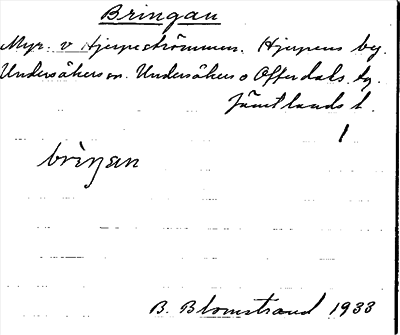 Bringan
Myr. v Hjerpeströmmen. Hjerpens by.
Undersåkers sn. Undersåkers o Offerdals tg.
Jämtlands l.
1
briŋan
B. Blomstrand 1933